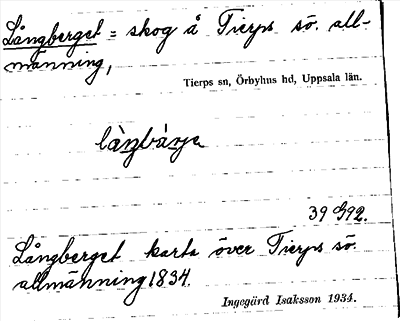 Långberget = skog å Tierps sö. all-
männing,
Tierps sn, Örbyhus hd, Uppsala län.
39
Långberget karta över Tierps sö.
allmänning 1834.
Ingegärd Isaksson 1934.